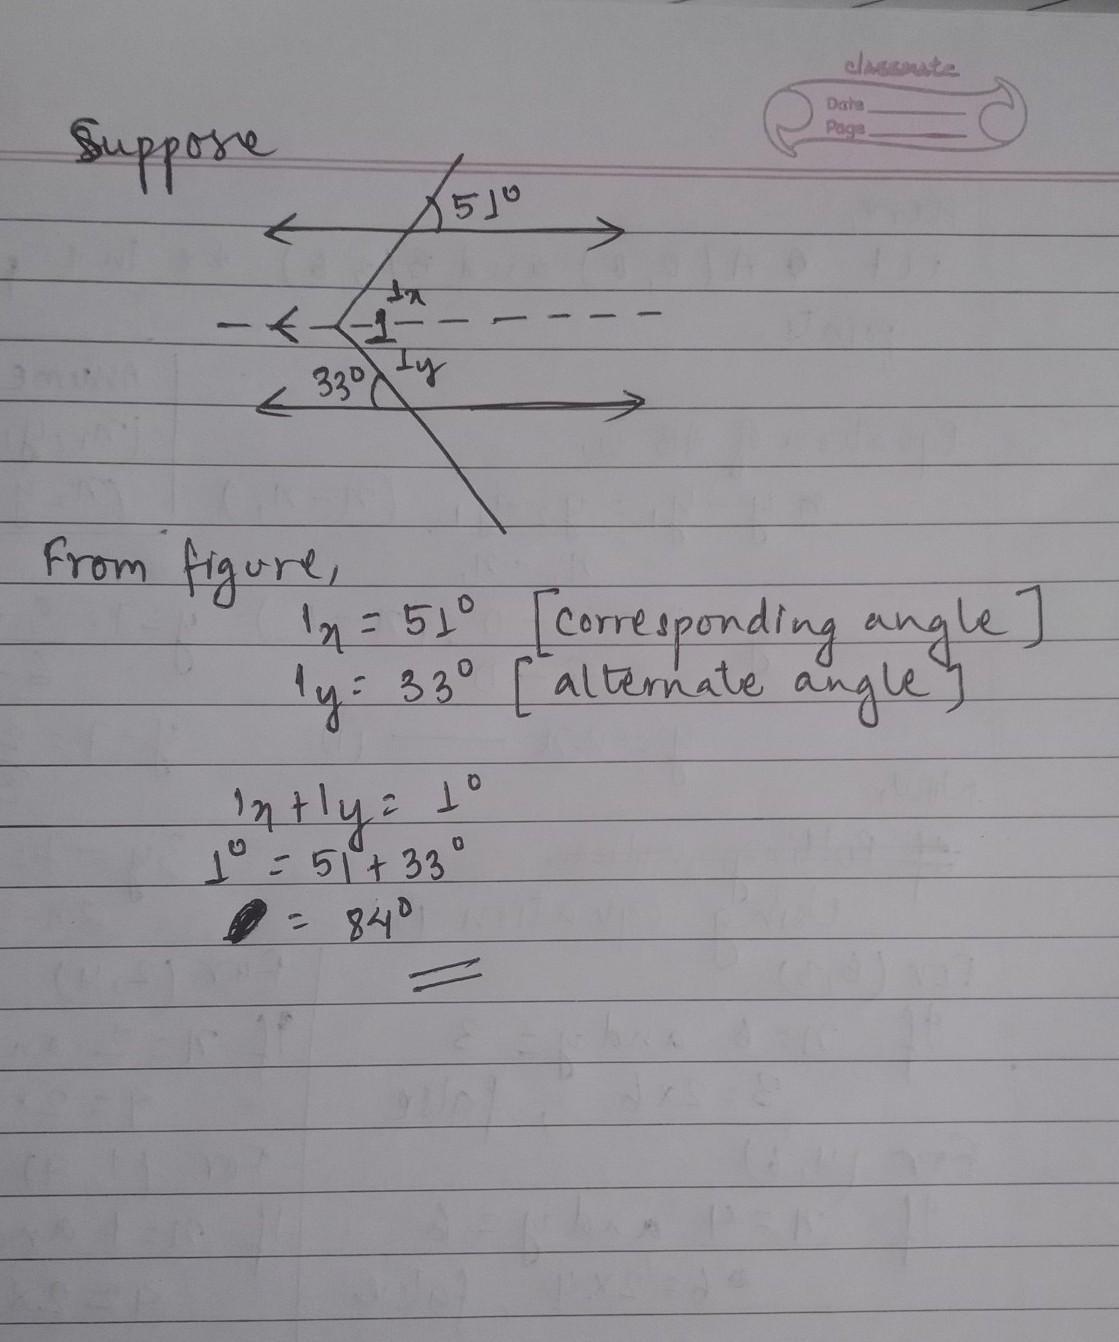 classmate
Date
Page
Suppose
51°
1x
1
1y
33°
From figure,
1x = 51° [corresponding angle]
1y = 33° [alternate angle]
1x + 1y = 1°
1° = 51 + 33°
= 84°